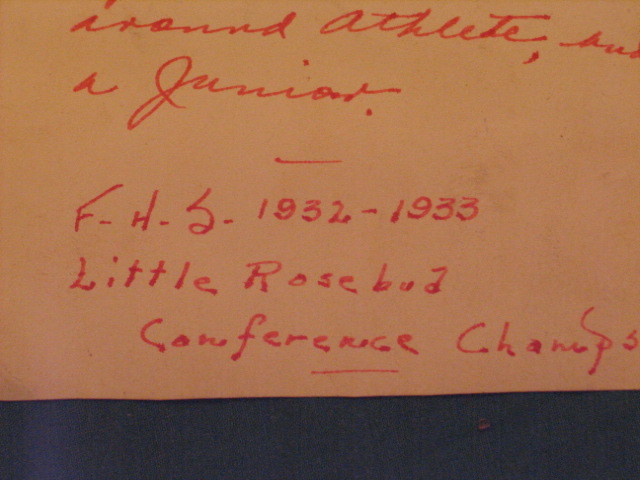 around athlete, and
a Junior.
F-H-S- 1932-1933
Little Rosebud
Conference Champs